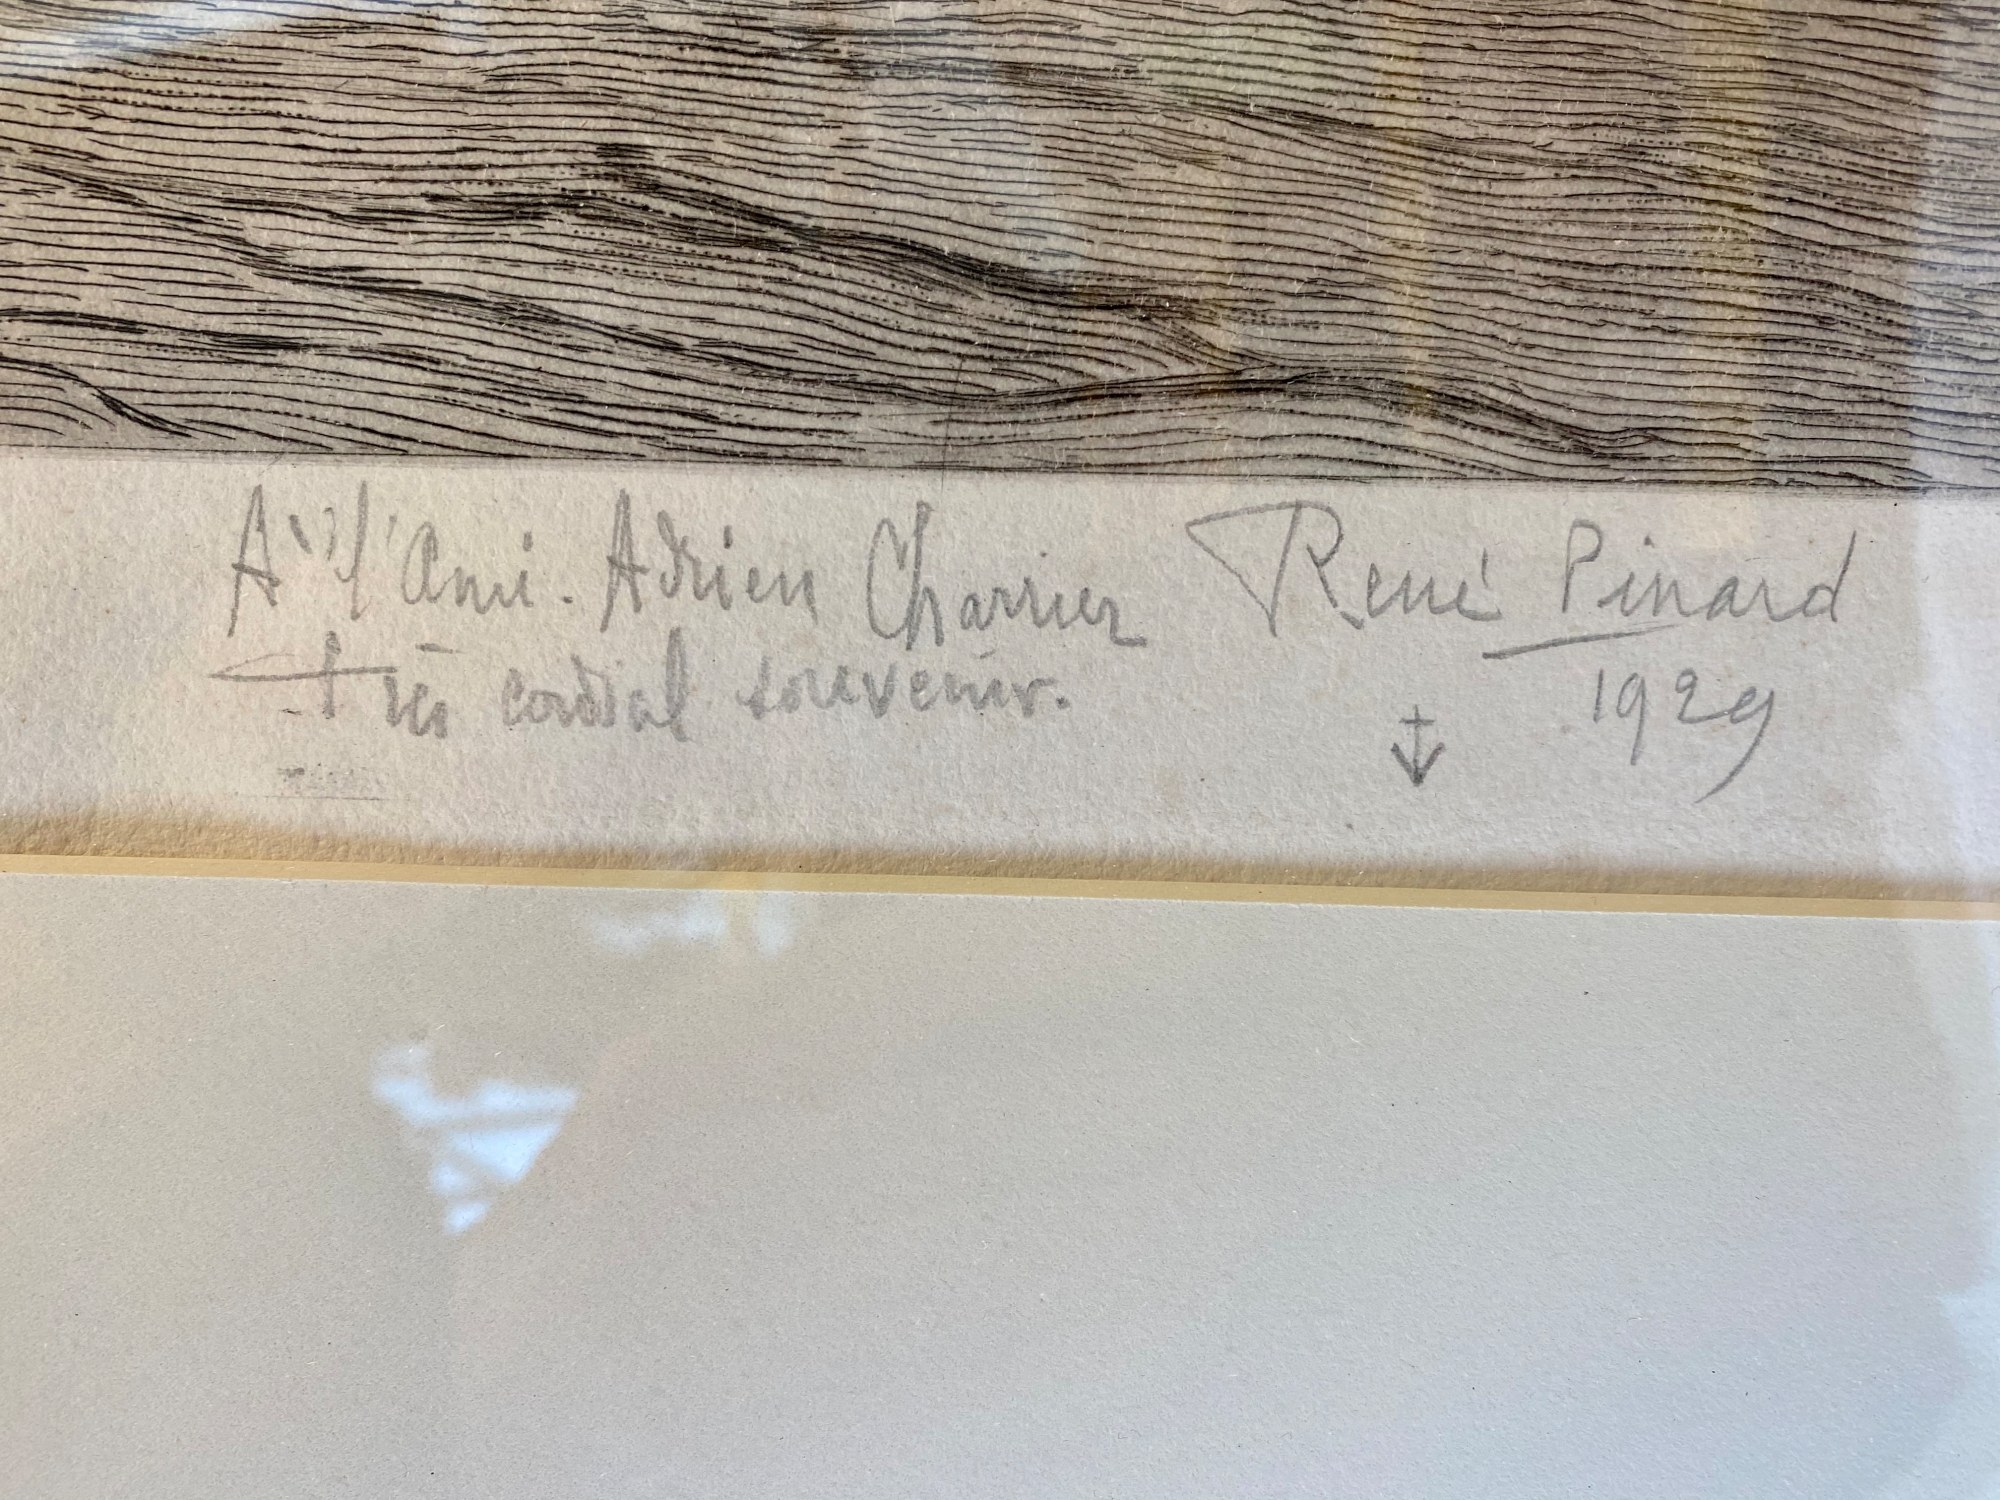 A l'Ami. Adrien Charrier
très cordial souvenir.
René Pinard
1929